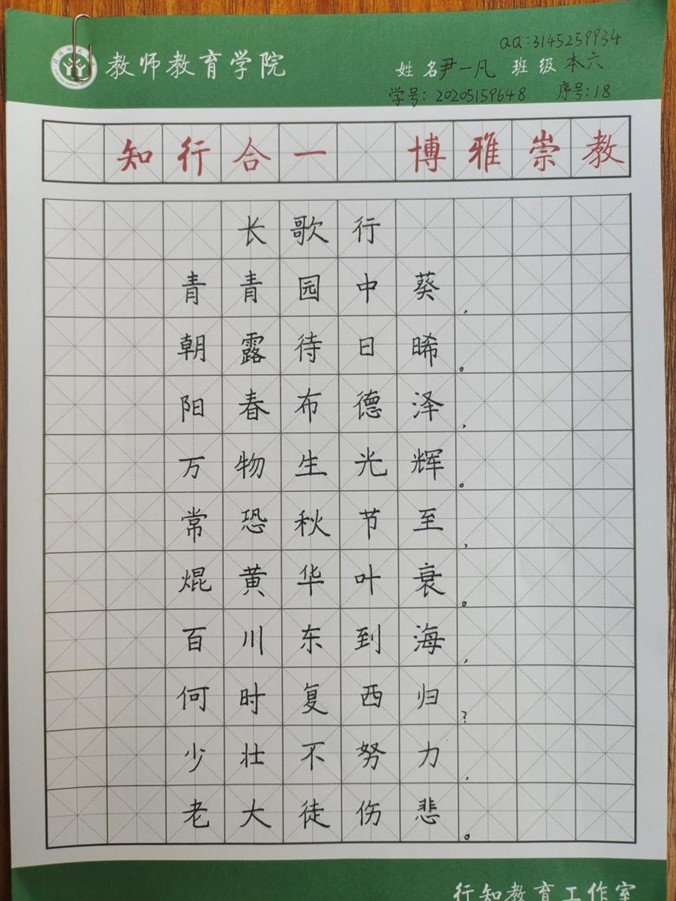 QQ:3145259934
教师教育学院 姓名尹一凡 班级本六
学号:20205159648 序号:18
知行合一 博雅崇教
长歌行
青青园中葵,
朝露待日晞。
阳春布德泽,
万物生光辉。
常恐秋节至,
焜黄华叶衰。
百川东到海,
何时复西归?
少壮不努力,
老大徒伤悲。
行知教育工作室